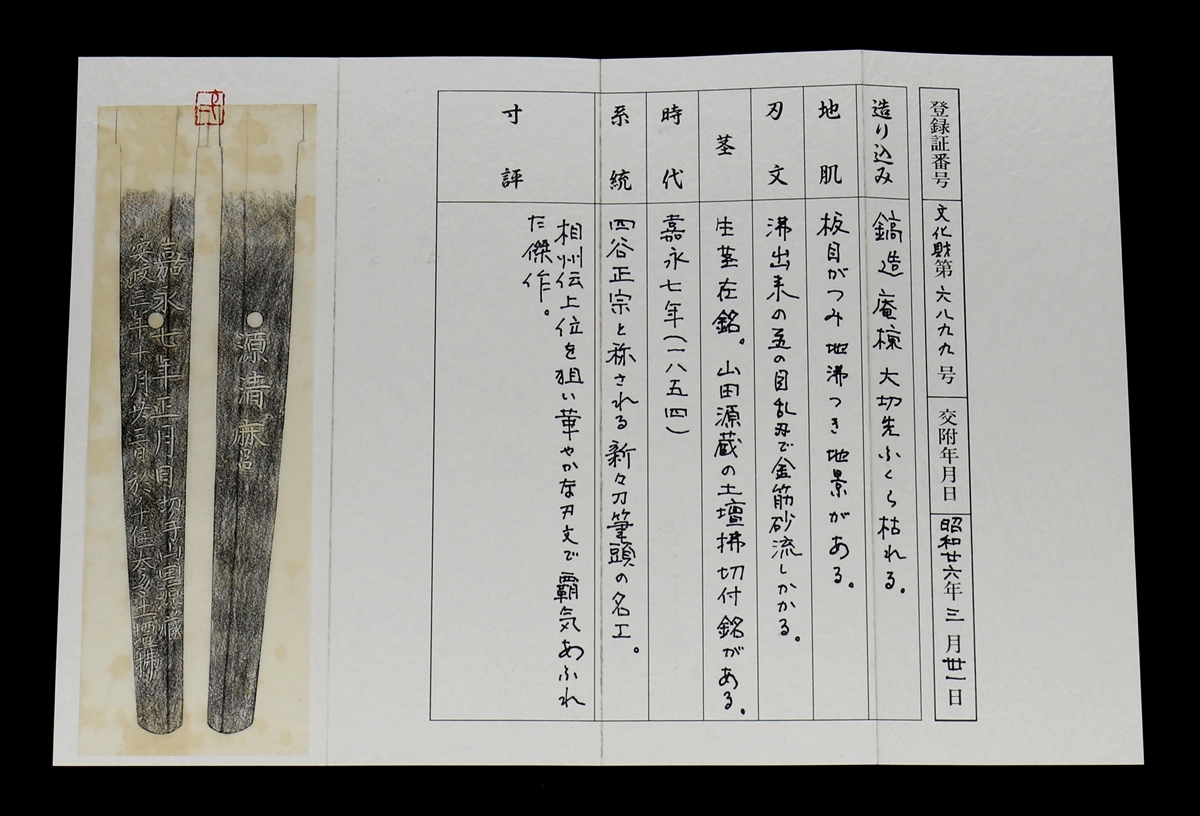 登録証番号 文化財第六八九九号 交附年月日 昭和廿六年三月廿一日
造り込み 鎬造庵棟大切先ふくら枯れる。
地肌 板目がつみ地沸つき地景がある。
刃文 沸出来の互の目乱刃で金筋砂流しかかる。
茎 生茎在銘。山田源蔵の土壇拂切付銘がある。
時代 嘉永七年(一八五四)
系統 四谷正宗と称される新々刀筆頭の名工。
寸評 相州伝上位を狙い華やかな刃文で覇気あふれ
た傑作。
源清麿
嘉永七年正月日 切手山田源蔵
安政三年十月廿三日於千住太々土壇拂